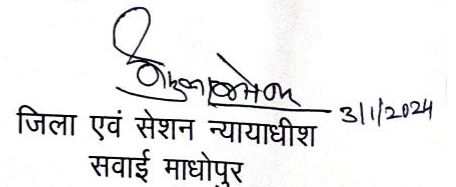 3/1/2024
जिला एवं सेशन न्यायाधीश
सवाई माधोपुर